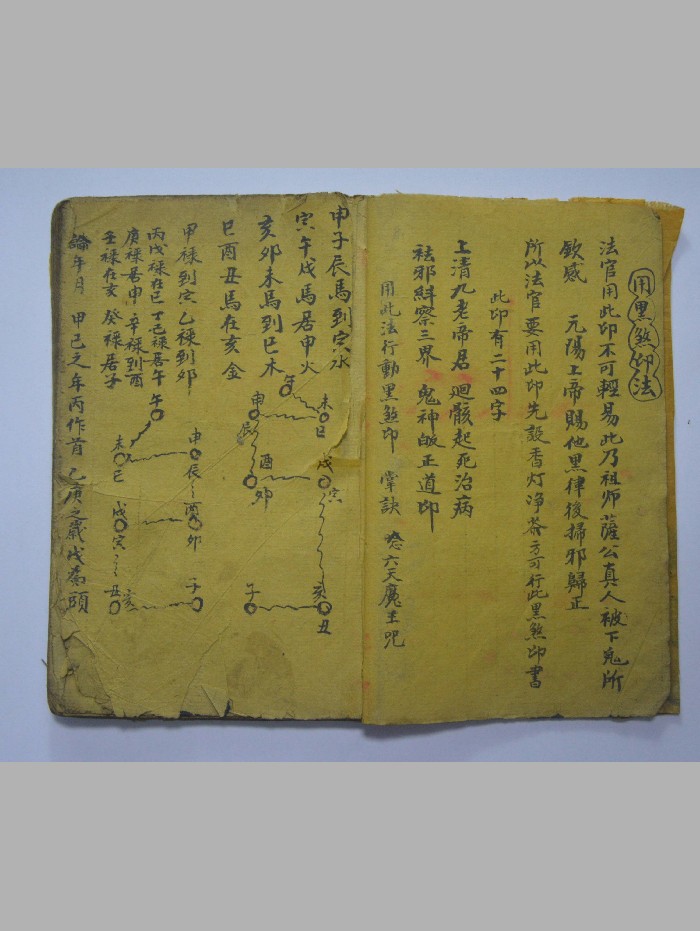 用黑煞印法
法官用此印不可輕易此乃祖师薩公真人被下鬼所
欽感 元陽上帝賜他黑律後掃邪歸正
所以法官要用此印先設香灯净茶方可行此黑煞印書
此印有二十四字
上清九老帝居 迴骸起死治病
祛邪糾察三界 鬼神皈正道印
用此法行動黑煞印 掌訣 念六天魔王咒
申子辰馬到寅水
寅午戌馬居申火
亥卯未馬到巳木
巳酉丑馬在亥金
午
未
巳
申
辰
戌
寅
酉
卯
亥
丑
子
甲禄到寅 乙禄到卯
丙戊禄在巳 丁己禄居午
庚禄居申 辛禄到酉
壬禄在亥 癸禄居子
午
未
巳
申
辰
戌
寅
酉
卯
丑
亥
子
年月 甲己之年丙作首 乙庚之歲戊為頭